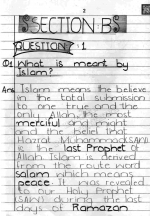 2
SECTION: B
QUESTION: 1
Q1 What is meant by
Islam?
Ans Islam means the believe
in the total submission
to one true and the
only Allah, the most
merciful and might
and the belief that
Hazrat Muhammad (SAW)
is the last Prophet of
Allah. Islam is derived
from the root word
salam which means
peace. It was revealed
to our Holy Prophet
(SAW) during the last
days of Ramazan